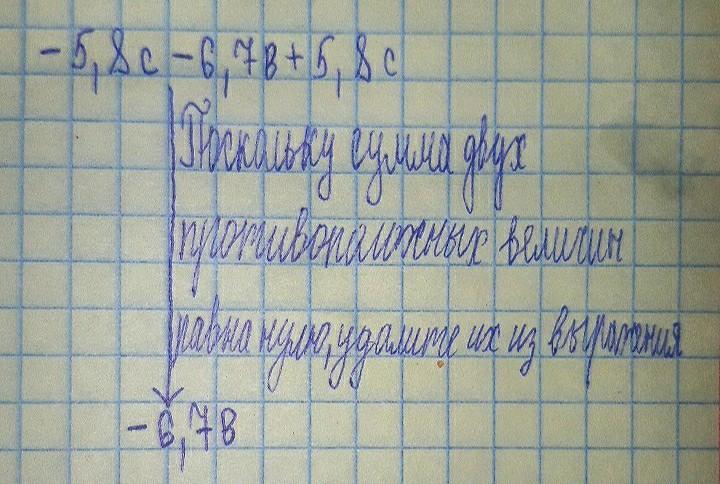 -5,8с -6,7в + 5,8с
Поскольку сумма двух
противоположных величин
равна нулю, удалите их из выражения
-6,7в